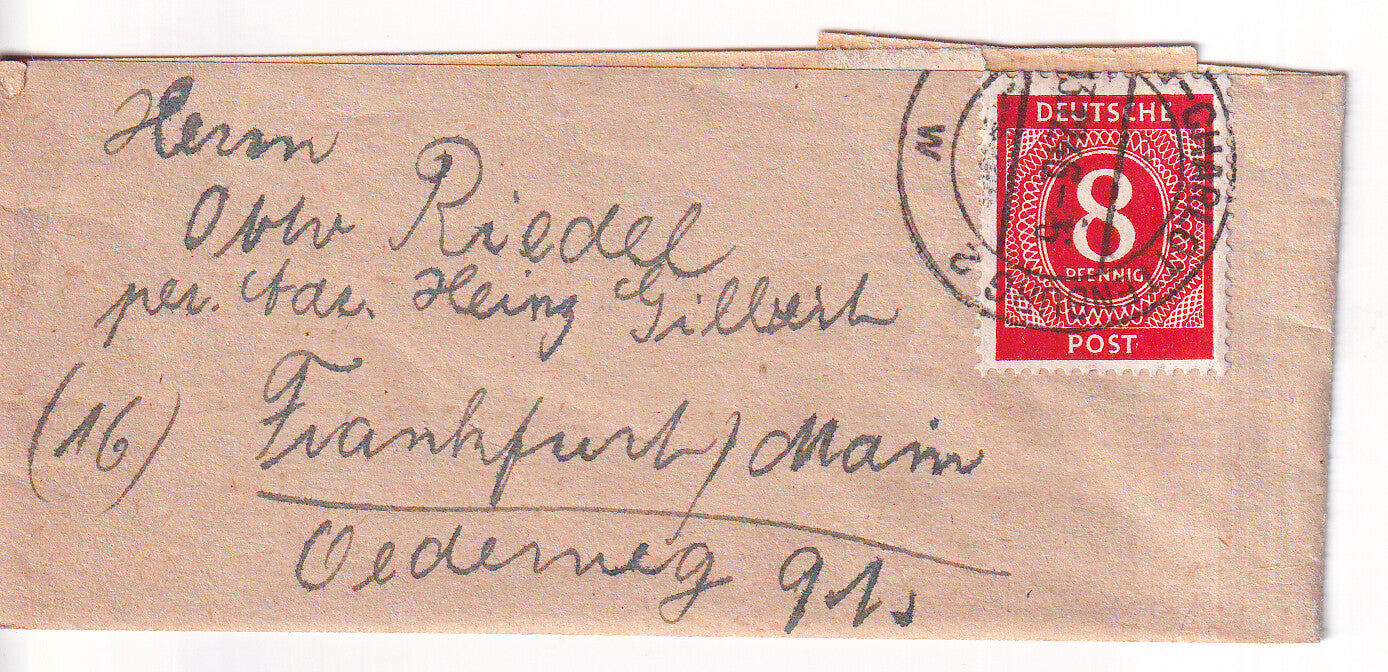 Herrn
Otto Riedel
per. Adr. Heinz Gilbert
(16) Frankfurt/Main
Oederweg 91
DEUTSCHE
8
PFENNIG
POST
-CHARLOTTENBURG 2
W